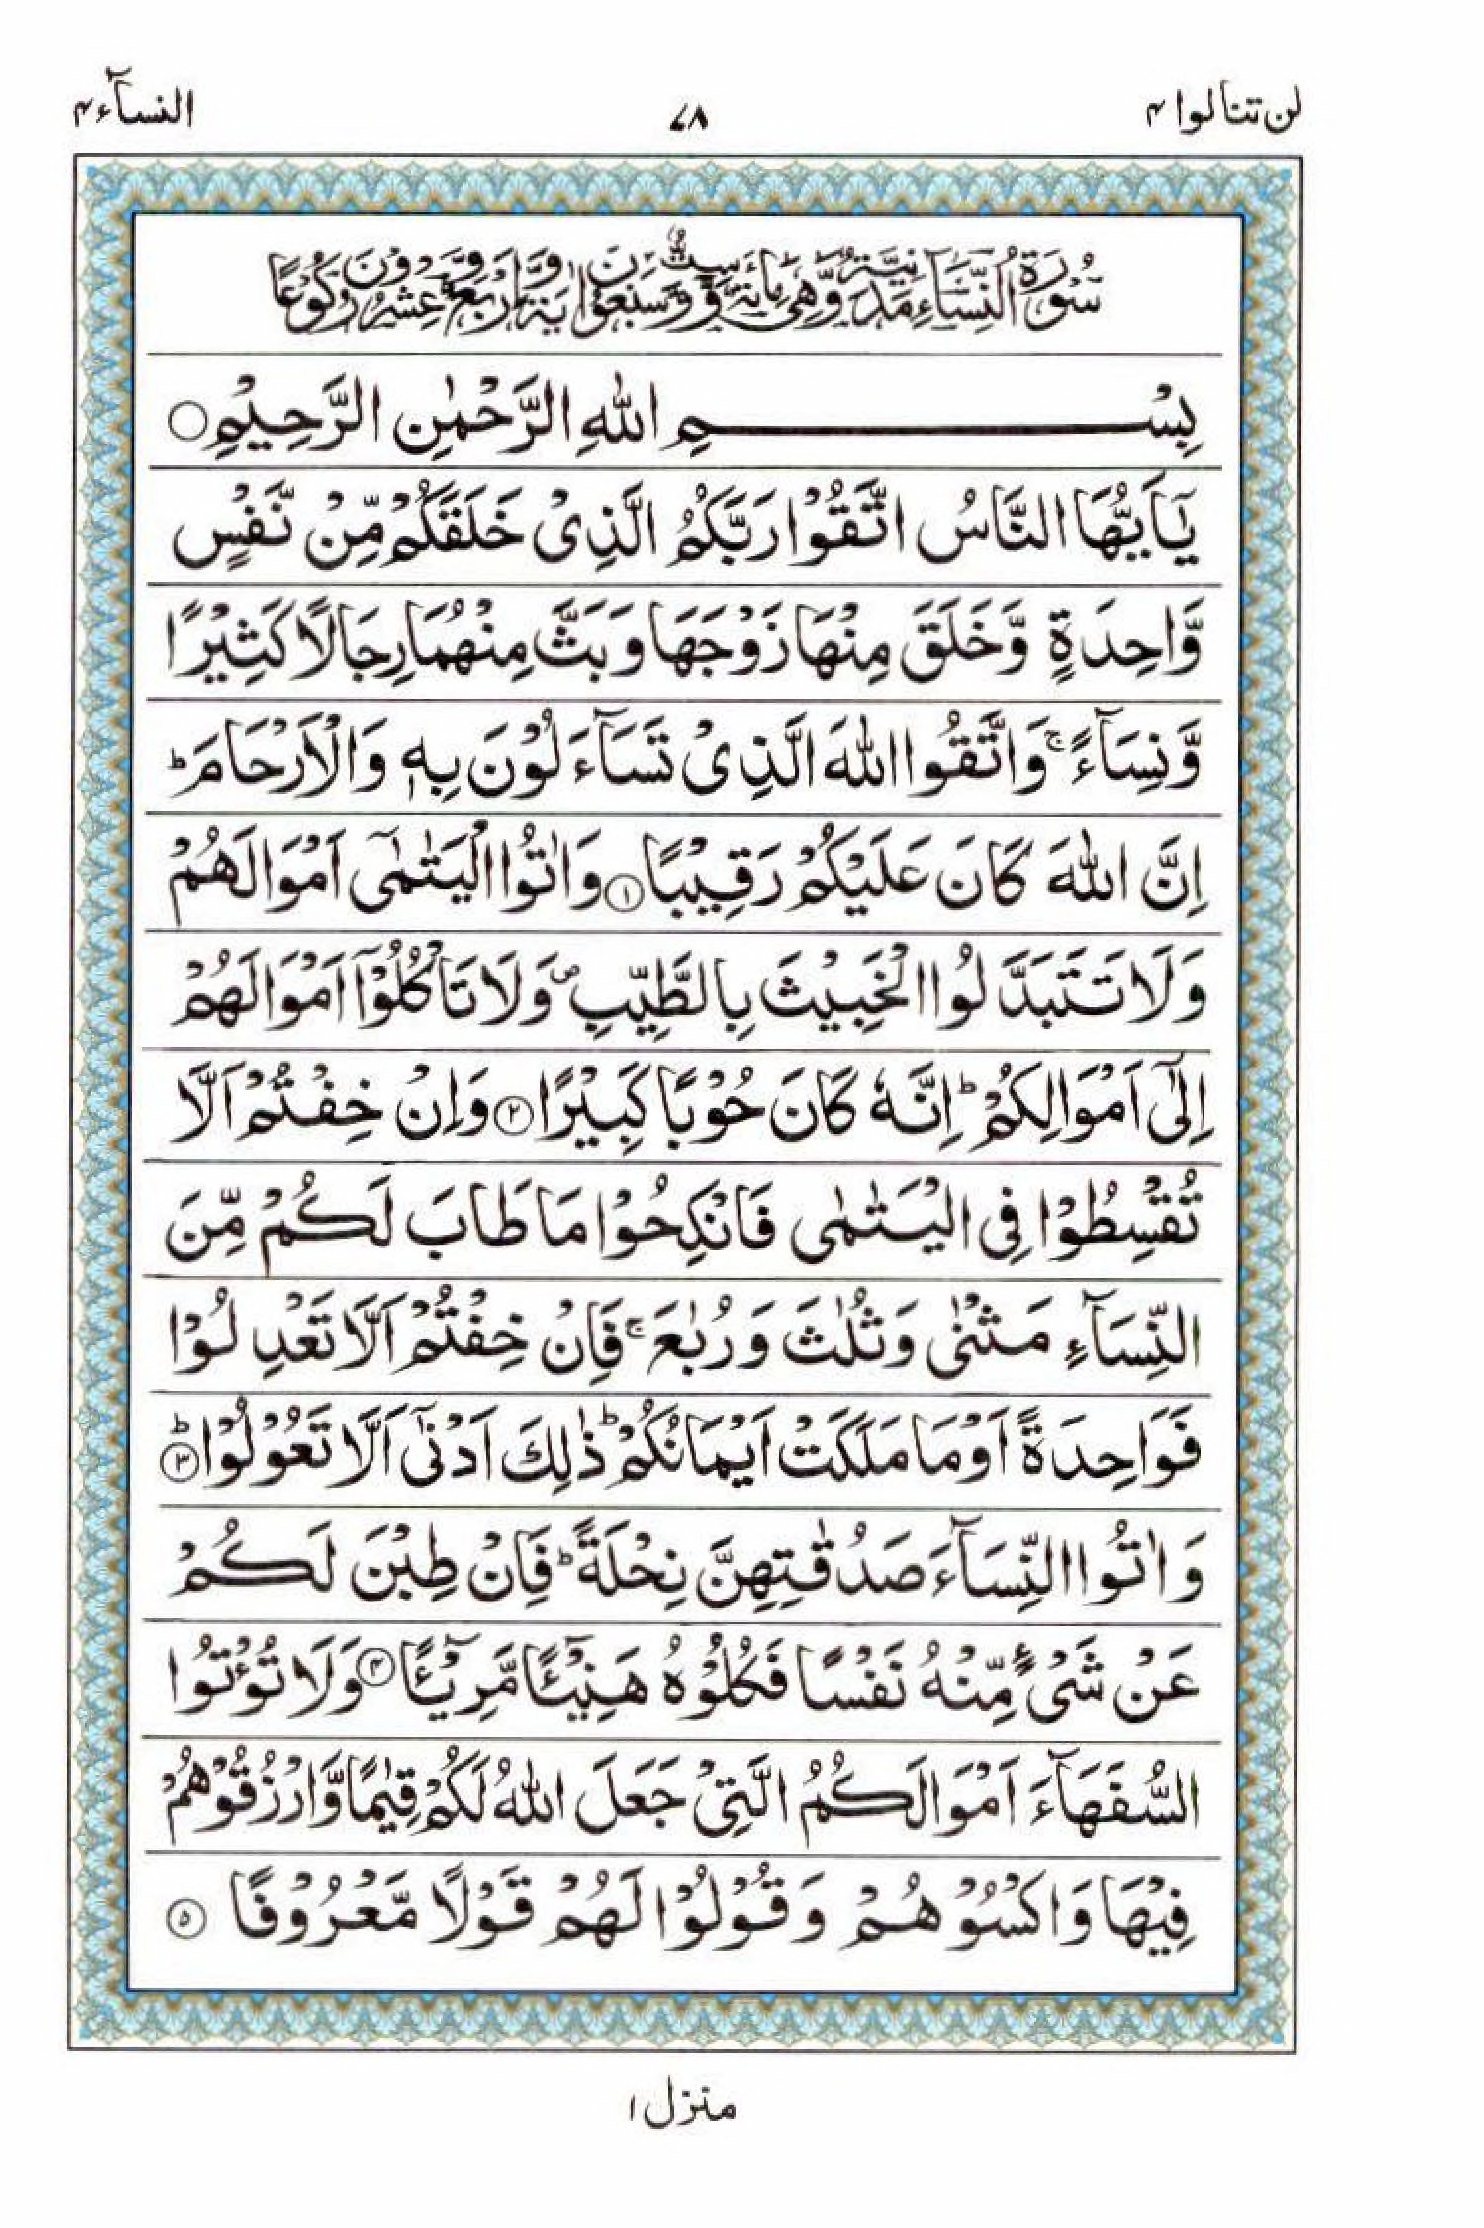 لن تنالوا ۴
۷۸
النسآء ۴
سُوْرَةُ النِّسَآءِ مَدَنِيَّةٌ وَّهِىَ مِائَةٌ وَّسِتٌّ وَّسَبْعُوْنَ اٰيَةً وَّاَرْبَعٌ وَّعِشْرُوْنَ رُكُوْعًا
بِسْمِ اللّٰهِ الرَّحْمٰنِ الرَّحِيْمِ ○
يٰۤاَيُّهَا النَّاسُ اتَّقُوْا رَبَّكُمُ الَّذِىْ خَلَقَكُمْ مِّنْ نَّفْسٍ
وَّاحِدَةٍ وَّخَلَقَ مِنْهَا زَوْجَهَا وَبَثَّ مِنْهُمَا رِجَالًا كَثِيْرًا
وَّنِسَآءً ۚ وَاتَّقُوا اللّٰهَ الَّذِىْ تَسَآءَلُوْنَ بِهٖ وَالْاَرْحَامَ ؕ
اِنَّ اللّٰهَ كَانَ عَلَيْكُمْ رَقِيْبًا ۝۱ وَاٰتُوا الْيَتٰمٰٓى اَمْوَالَهُمْ
وَلَا تَتَبَدَّلُوا الْخَبِيْثَ بِالطَّيِّبِ ۪ وَلَا تَاْكُلُوْۤا اَمْوَالَهُمْ
اِلٰٓى اَمْوَالِكُمْ ؕ اِنَّهٗ كَانَ حُوْبًا كَبِيْرًا ۝۲ وَاِنْ خِفْتُمْ اَلَّا
تُقْسِطُوْا فِى الْيَتٰمٰى فَانْكِحُوْا مَا طَابَ لَكُمْ مِّنَ
النِّسَآءِ مَثْنٰى وَثُلٰثَ وَرُبٰعَ ۚ فَاِنْ خِفْتُمْ اَلَّا تَعْدِلُوْا
فَوَاحِدَةً اَوْ مَا مَلَكَتْ اَيْمَانُكُمْ ؕ ذٰلِكَ اَدْنٰٓى اَلَّا تَعُوْلُوْا ؕ۝۳
وَاٰتُوا النِّسَآءَ صَدُقٰتِهِنَّ نِحْلَةً ؕ فَاِنْ طِبْنَ لَكُمْ
عَنْ شَىْءٍ مِّنْهُ نَفْسًا فَكُلُوْهُ هَنِيْٓئًا مَّرِيْٓئًا ۝۴ وَلَا تُؤْتُوا
السُّفَهَآءَ اَمْوَالَكُمُ الَّتِىْ جَعَلَ اللّٰهُ لَكُمْ قِيٰمًا وَّارْزُقُوْهُمْ
فِيْهَا وَاكْسُوْهُمْ وَقُوْلُوْا لَهُمْ قَوْلًا مَّعْرُوْفًا ۝۵
منزل ۱